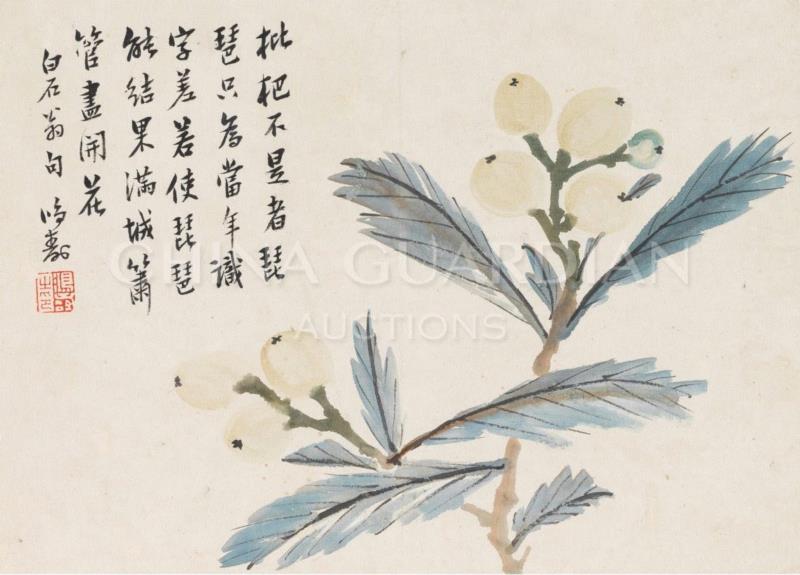 枇杷不是者琵
琶只為當年識
字差若使琵琶
能結果滿城簫
管盡開花
白石翁句 鴻壽
CHINA GUARDIAN
AUCTIONS